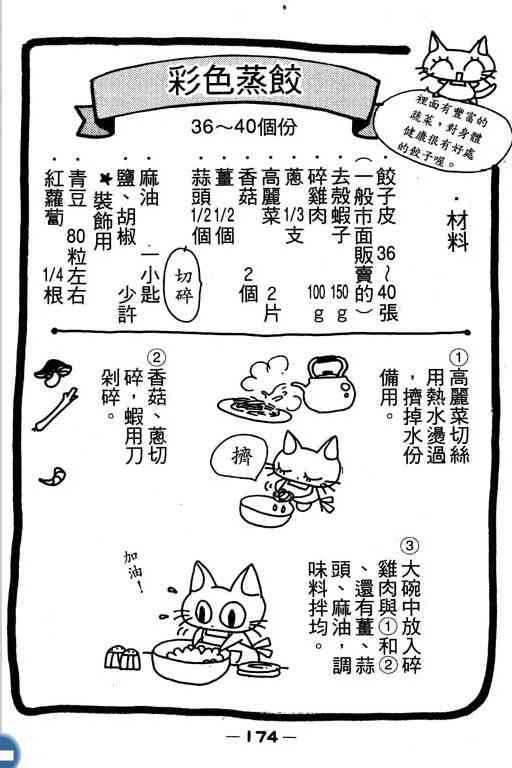 彩色蒸餃
36～40個份
裡面有豐富的
蔬菜，對身體
健康很有好處
的餃子喔。
・材料
・餃子皮 36～40張
（一般市面販賣的）
・去殼蝦子 150g
・碎雞肉 100g
・蔥 1/3支
・高麗菜 2片
・香菇 2個
・薑 1/2個
・蒜頭 1/2個
切碎
・麻油 一小匙
・鹽、胡椒 少許
★裝飾用
・青豆 80粒左右
・紅蘿蔔 1/4根
①高麗菜切絲
用熱水燙過
，擠掉水份
備用。
擠
②香菇、蔥切
碎，蝦用刀
剁碎。
③大碗中放入碎
雞肉與①和②
、還有薑、蒜
頭、麻油，調
味料拌均。
加油！
－174－